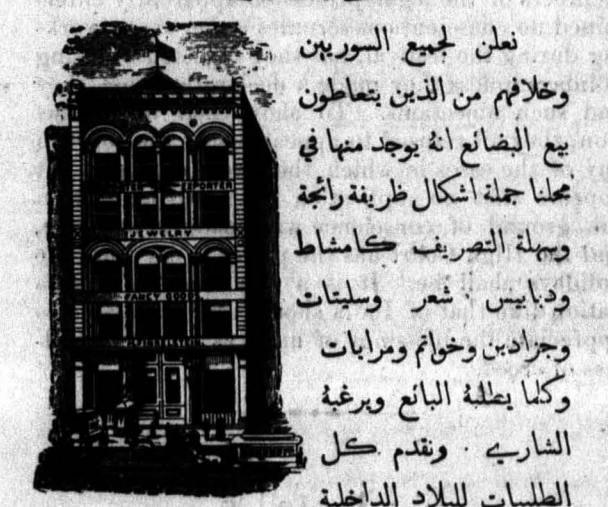 نعلن لجميع السوريين
وخلافهم من الذين يتعاطون
بيع البضائع انهُ يوجد منها في
محلنا جملة اشكال ظريفة رائجة
وسهلة التصريف كامشاط
ودبابيس شعر وسليتات
وجزادين وخواتم ومرايات
وكلما يطلبهُ البائع ويرغبهُ
الشاري . ونقدم كل
الطلبيات للبلاد الداخلية
IMPORTER EXPORTER
JEWELRY
FANCY GOODS
FINKELSTEIN